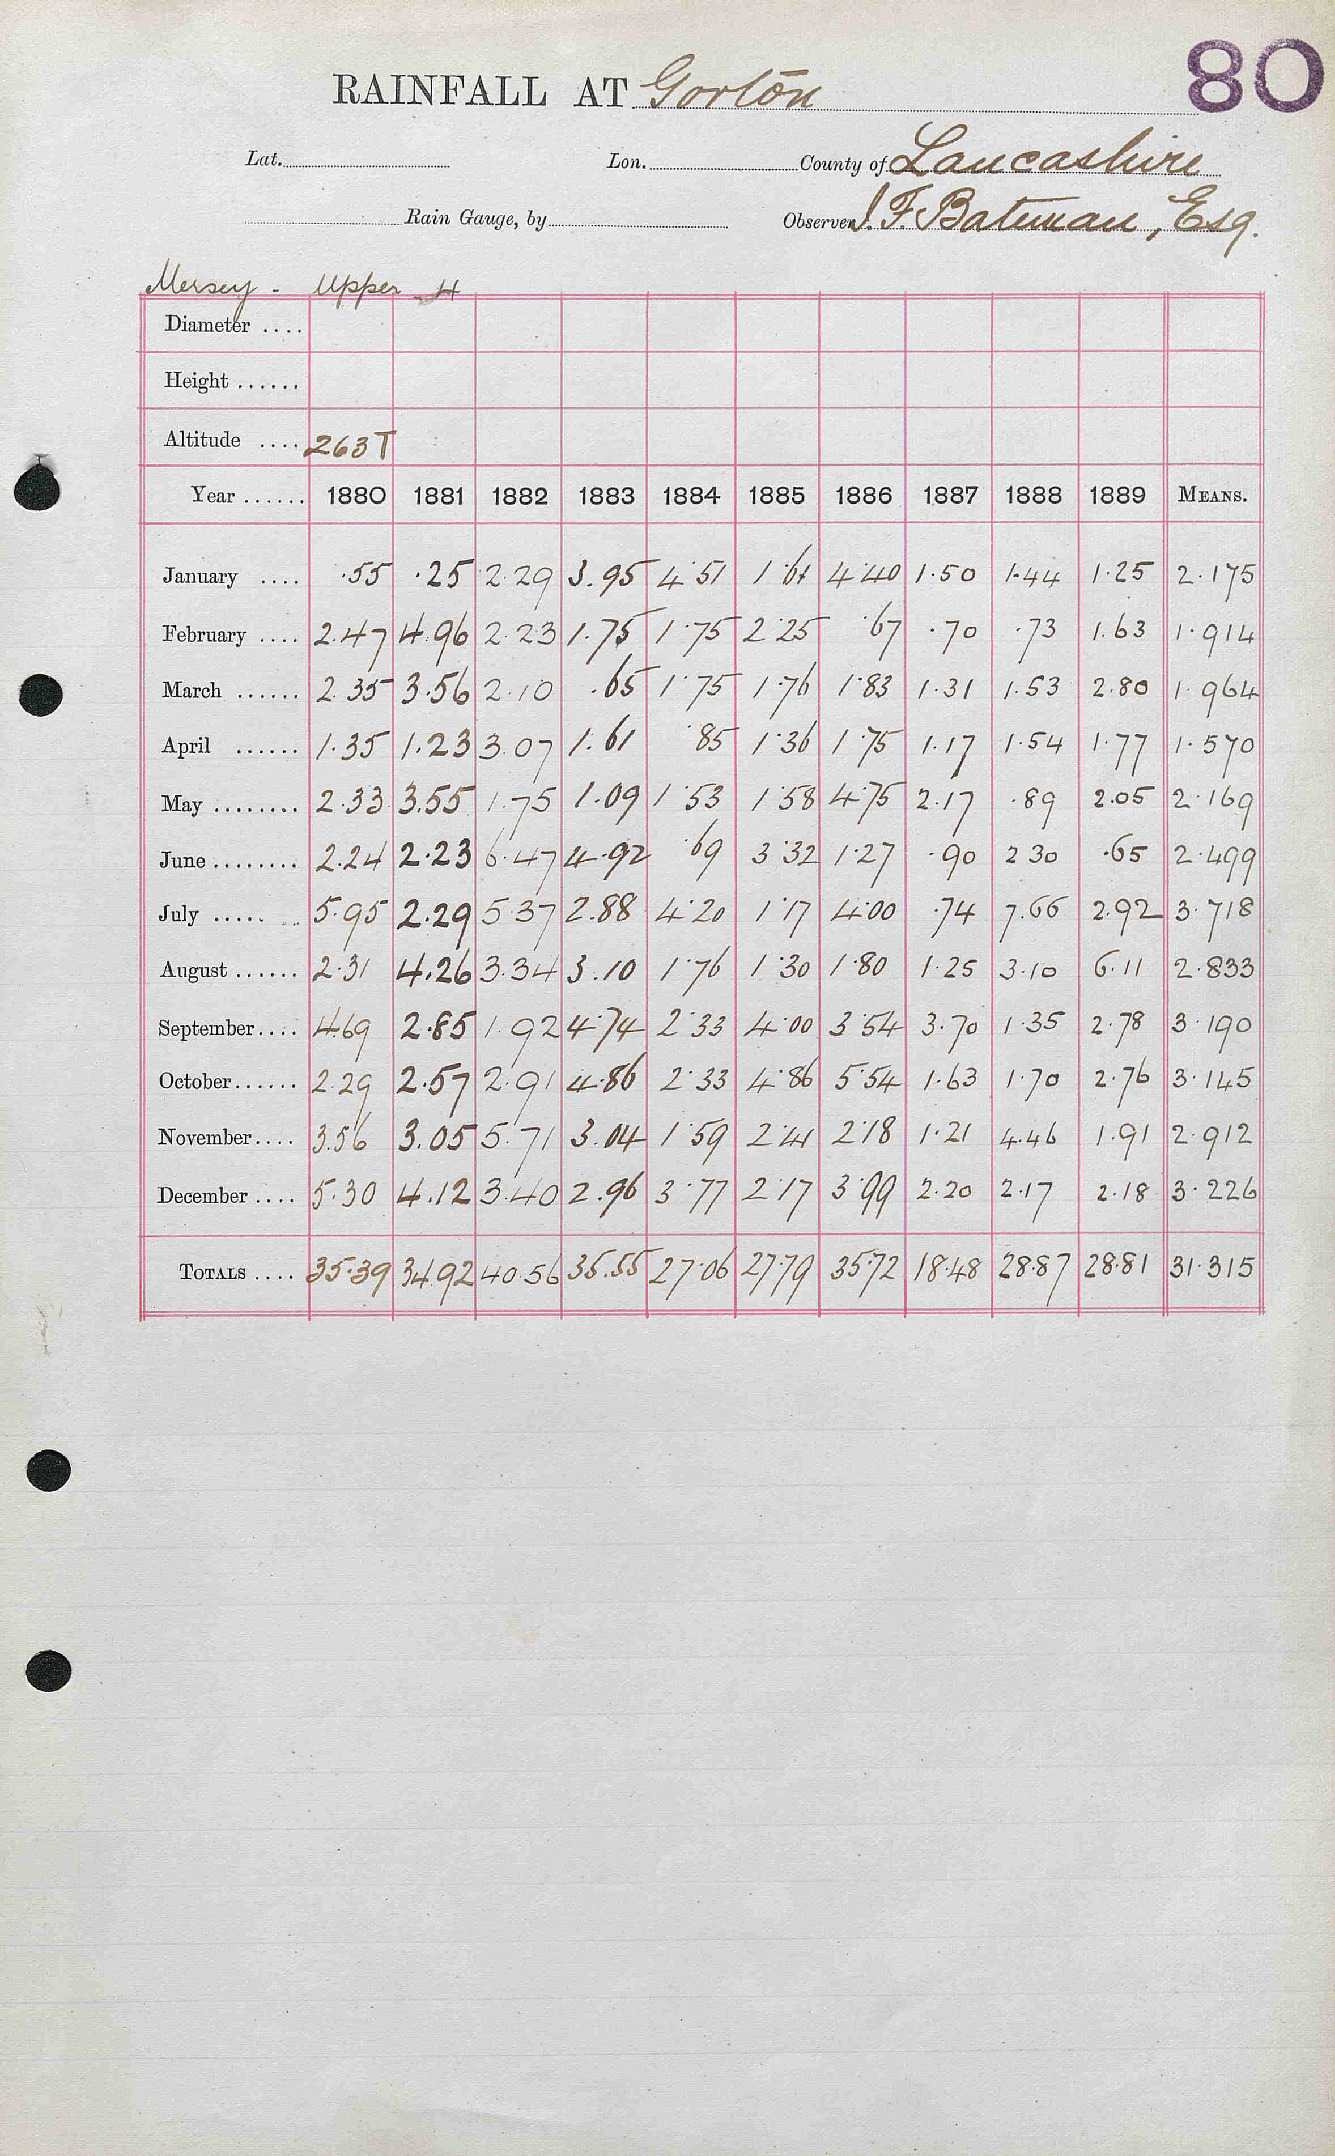 80
RAINFALL AT Gorton
Lat. Lon. County of Lancashire
Rain Gauge, by Observer J. F. Bateman, Esq.
Mersey - Upper H
Diameter ....
Height ......
Altitude .... 263 T
Year ...... 1880 1881 1882 1883 1884 1885 1886 1887 1888 1889 MEANS.
January .... .55 .25 2.29 3.95 4.51 1.61 4.40 1.50 1.44 1.25 2.175
February .... 2.47 4.96 2.23 1.75 1.75 2.25 .67 .70 .73 1.63 1.914
March ...... 2.35 3.56 2.10 .65 1.75 1.76 1.83 1.31 1.53 2.80 1.964
April ...... 1.35 1.23 3.07 1.61 .85 1.36 1.75 1.17 1.54 1.77 1.570
May ........ 2.33 3.55 1.75 1.09 1.53 1.58 4.75 2.17 .89 2.05 2.169
June ........ 2.24 2.23 6.47 4.92 .69 3.32 1.27 .90 2 30 .65 2.499
July ....... 5.95 2.29 5.37 2.88 4.20 1.17 4.00 .74 7.66 2.92 3.718
August ...... 2.31 4.26 3.34 3.10 1.76 1.30 1.80 1.25 3.10 6.11 2.833
September .... 4.69 2.85 1.92 4.74 2.33 4.00 3.54 3.70 1.35 2.78 3.190
October ...... 2.29 2.57 2.91 4.86 2.33 4.86 5.54 1.63 1.70 2.76 3.145
November .... 3.56 3.05 5.71 3.04 1.59 2.41 2.18 1.21 4.46 1.91 2.912
December .... 5.30 4.12 3.40 2.96 3.77 2.17 3.99 2.20 2.17 2.18 3.226
TOTALS .... 35.39 34.92 40.56 35.55 27.06 27.79 35.72 18.48 28.87 28.81 31.315